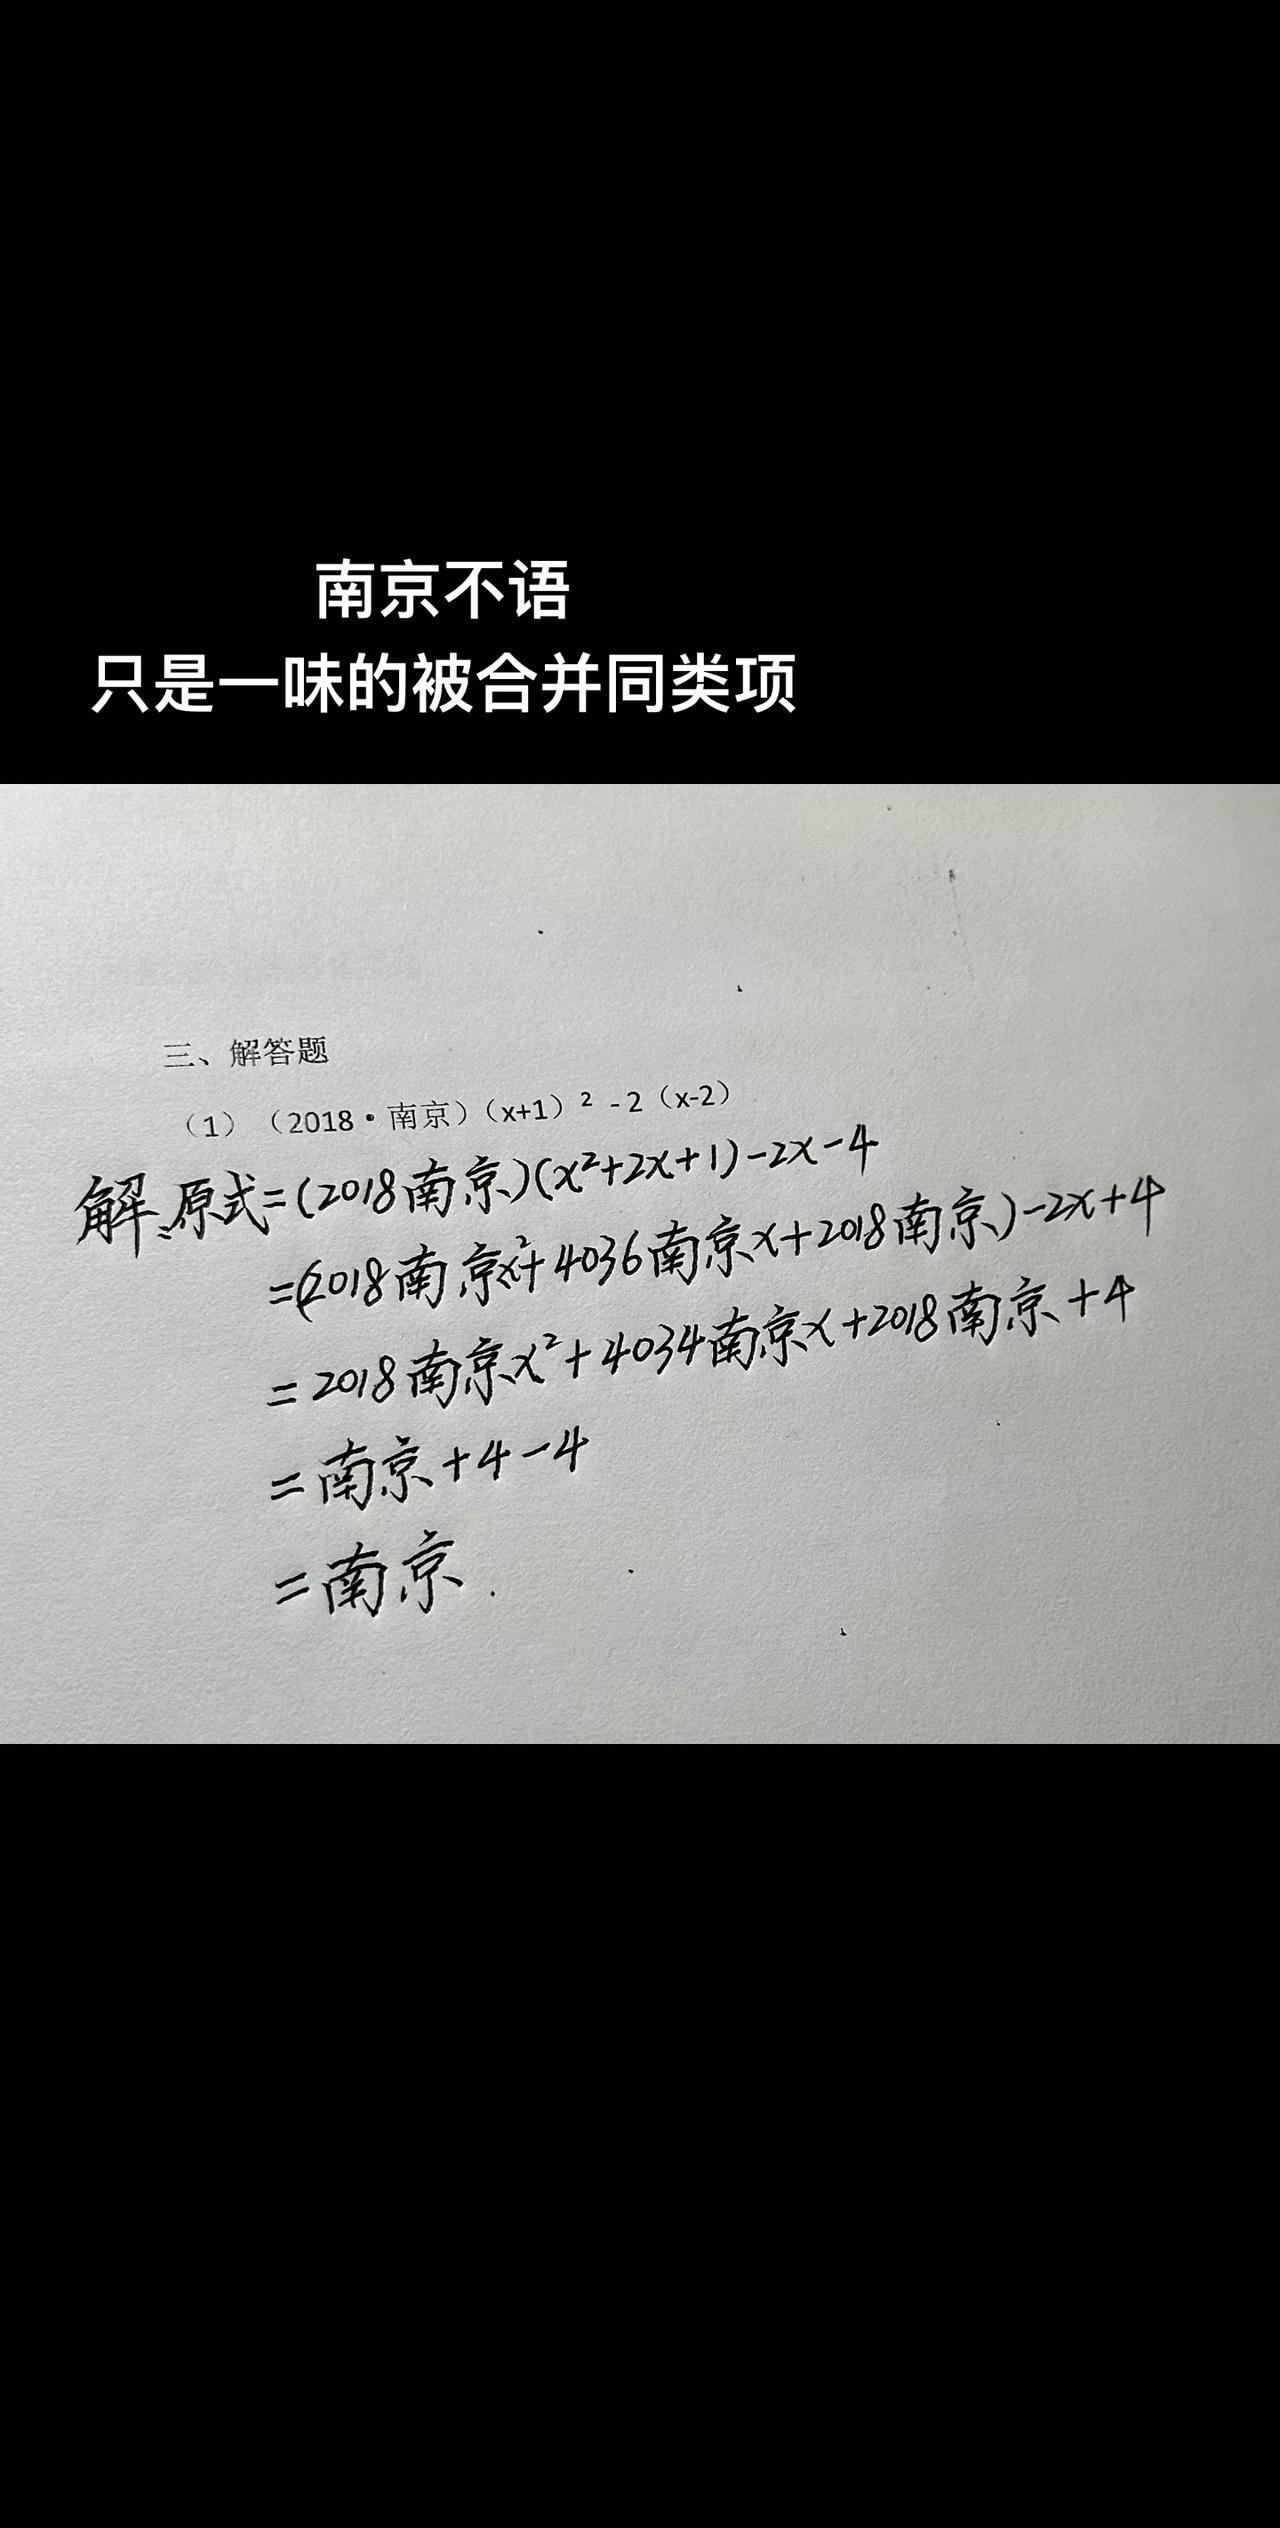 南京不语
只是一味的被合并同类项
三、解答题
（1）（2018·南京）（x+1）² -2（x-2）
解:原式=(2018南京)(x²+2x+1)-2x-4
=(2018南京x²+4036南京x+2018南京)-2x+4
=2018南京x²+4034南京x+2018南京+4
=南京+4-4
=南京.